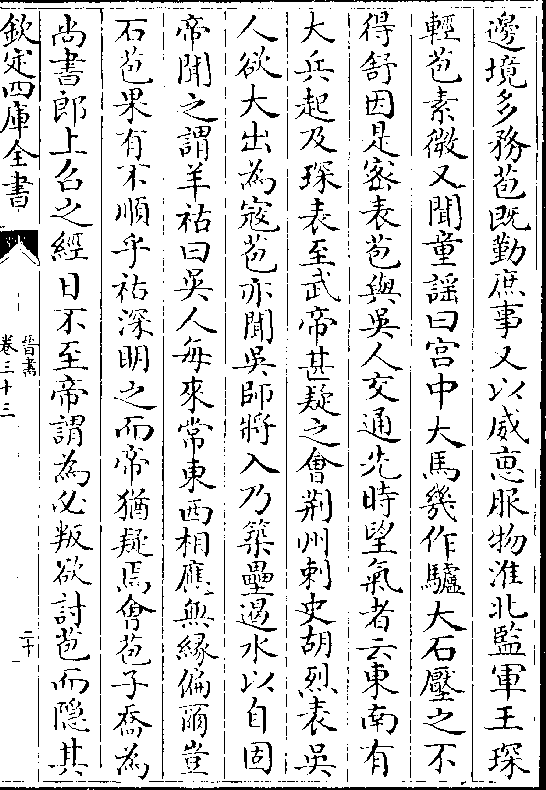 邊境多務苞既勤庶事又以威恵服物淮北監軍王琛
輕苞素微又聞童謡曰宫中大馬幾作驢大石壓之不
得舒因是宻表苞與吳人交通先時望氣者云東南有
大兵起及琛表至武帝甚疑之會荆州刺史胡烈表吳
人欲大出為寇苞亦聞吳師將入乃築壘遏水以自固
帝聞之謂羊祜曰吳人毎來常東西相應無緣偏爾豈
石苞果有不順乎祜深明之而帝猶疑焉會苞子喬為
尚書郎上召之經日不至帝謂為必叛欲討苞而隱其
欽定四庫全書
晉書
卷三十三
二十